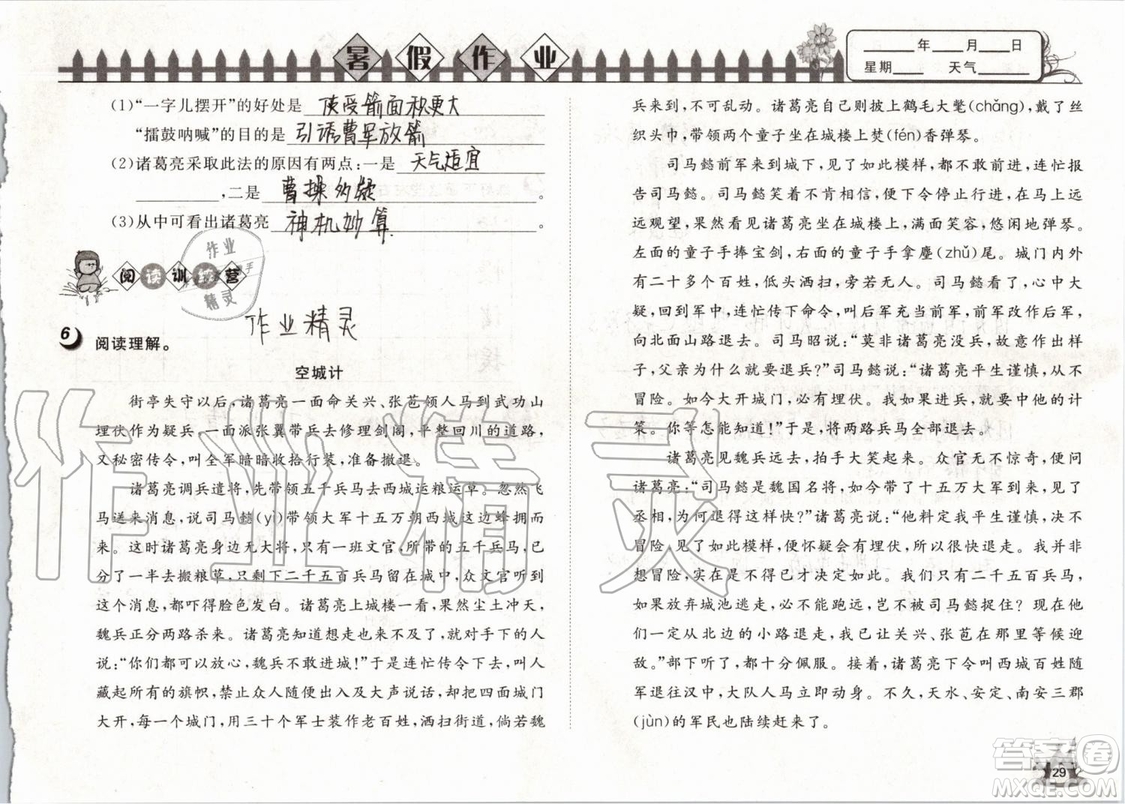 暑假作业
____年__月__日
星期____ 天气____
(1)“一字儿摆开”的好处是 使受箭面积更大
“擂鼓呐喊”的目的是 引诱曹军放箭
(2)诸葛亮采取此法的原因有两点:一是 天气适宜
,二是 曹操多疑 。
(3)从中可看出诸葛亮 神机妙算 。
阅读训练营
作业
精灵
6 阅读理解。
作业精灵
空城计
街亭失守以后,诸葛亮一面命关兴、张苞领人马到武功山
埋伏作为疑兵,一面派张翼带兵去修理剑阁,平整回川的道路,
又秘密传令,叫全军暗暗收拾行装,准备撤退。
诸葛亮调兵遣将,先带领五千兵马去西城运粮草。忽然飞
马送来消息,说司马懿(yì)带领大军十五万朝西城这边蜂拥而
来。这时诸葛亮身边无大将,只有一班文官,所带的五千兵马,已经
分了一半去搬粮草,只剩下二千五百兵马在城中,众文官听到
这个消息,都吓得脸色发白。诸葛亮上城楼一看,果然尘土冲天,
魏兵正分两路杀来。诸葛亮知道想走来不及了,对手下的人
说:“你们都可以放心,魏兵不敢进城!”于是连忙传令,叫人藏
起所有的旗帜,禁止众人随便出入及大声说话,却把四面城门
大开,每一个城门,用三十个军士装作老百姓,洒扫街道,倘若魏
兵来到,不可乱动。诸葛亮自己则披上鹤毛大氅(chǎng),戴了丝
织头巾,带领两个童子坐在城楼上焚(fén)香弹琴。
司马懿前军来到城下,见了如此模样,都不敢前进,连忙报
告司马懿。司马懿笑着不肯相信,便下令停止行进,自己在马上远
远观望。果然看见诸葛亮坐在城楼上,满面笑容,悠闲地弹琴。
左面的童子手捧宝剑,右面的童子手拿麈(zhǔ)尾。城门内外
只有二十几个老百姓,低头洒扫,旁若无人。司马懿看了,大起疑
心,回到军中,连忙传下命令,叫后军充当前军,前军改作后军,
向北面山路退去。司马昭说:“莫非诸葛亮没兵,故意作出样
子,父亲为什么就要退兵?”司马懿说:“诸葛亮平生谨慎,从不
冒险。如今大开城门,必有埋伏。我如果进兵,就要中他的计
策。你等怎能知道!”于是,将两路兵马全部退去。
诸葛亮见魏兵退去,拍手大笑起来。众官无不惊奇,便问
诸葛亮:“司马懿是魏国名将,为什么带了十五万大军来到,见了
丞相,为何退得这样快?”诸葛亮说:“他料定我平生谨慎,决不
冒险,见了如此模样,便怀疑会有埋伏,所以很快退走。我并非
想冒险,实在是不得已才决定如此。我们只有二千五百兵马,
如果放弃城池逃走,能跑多远呢?不是要被司马懿捉住?现在
他一定从北边的小路退走,我已命令关兴、张苞在那里等候迎
敌。”部下听了,都十分佩服。接着,诸葛亮下令叫西城百姓随
军退往汉中,大队人马立即动身。不久,天水、安定、南安三郡
(jùn)的军民也陆续赶来了。
作业精灵
答案圈
MXQE.COM
29